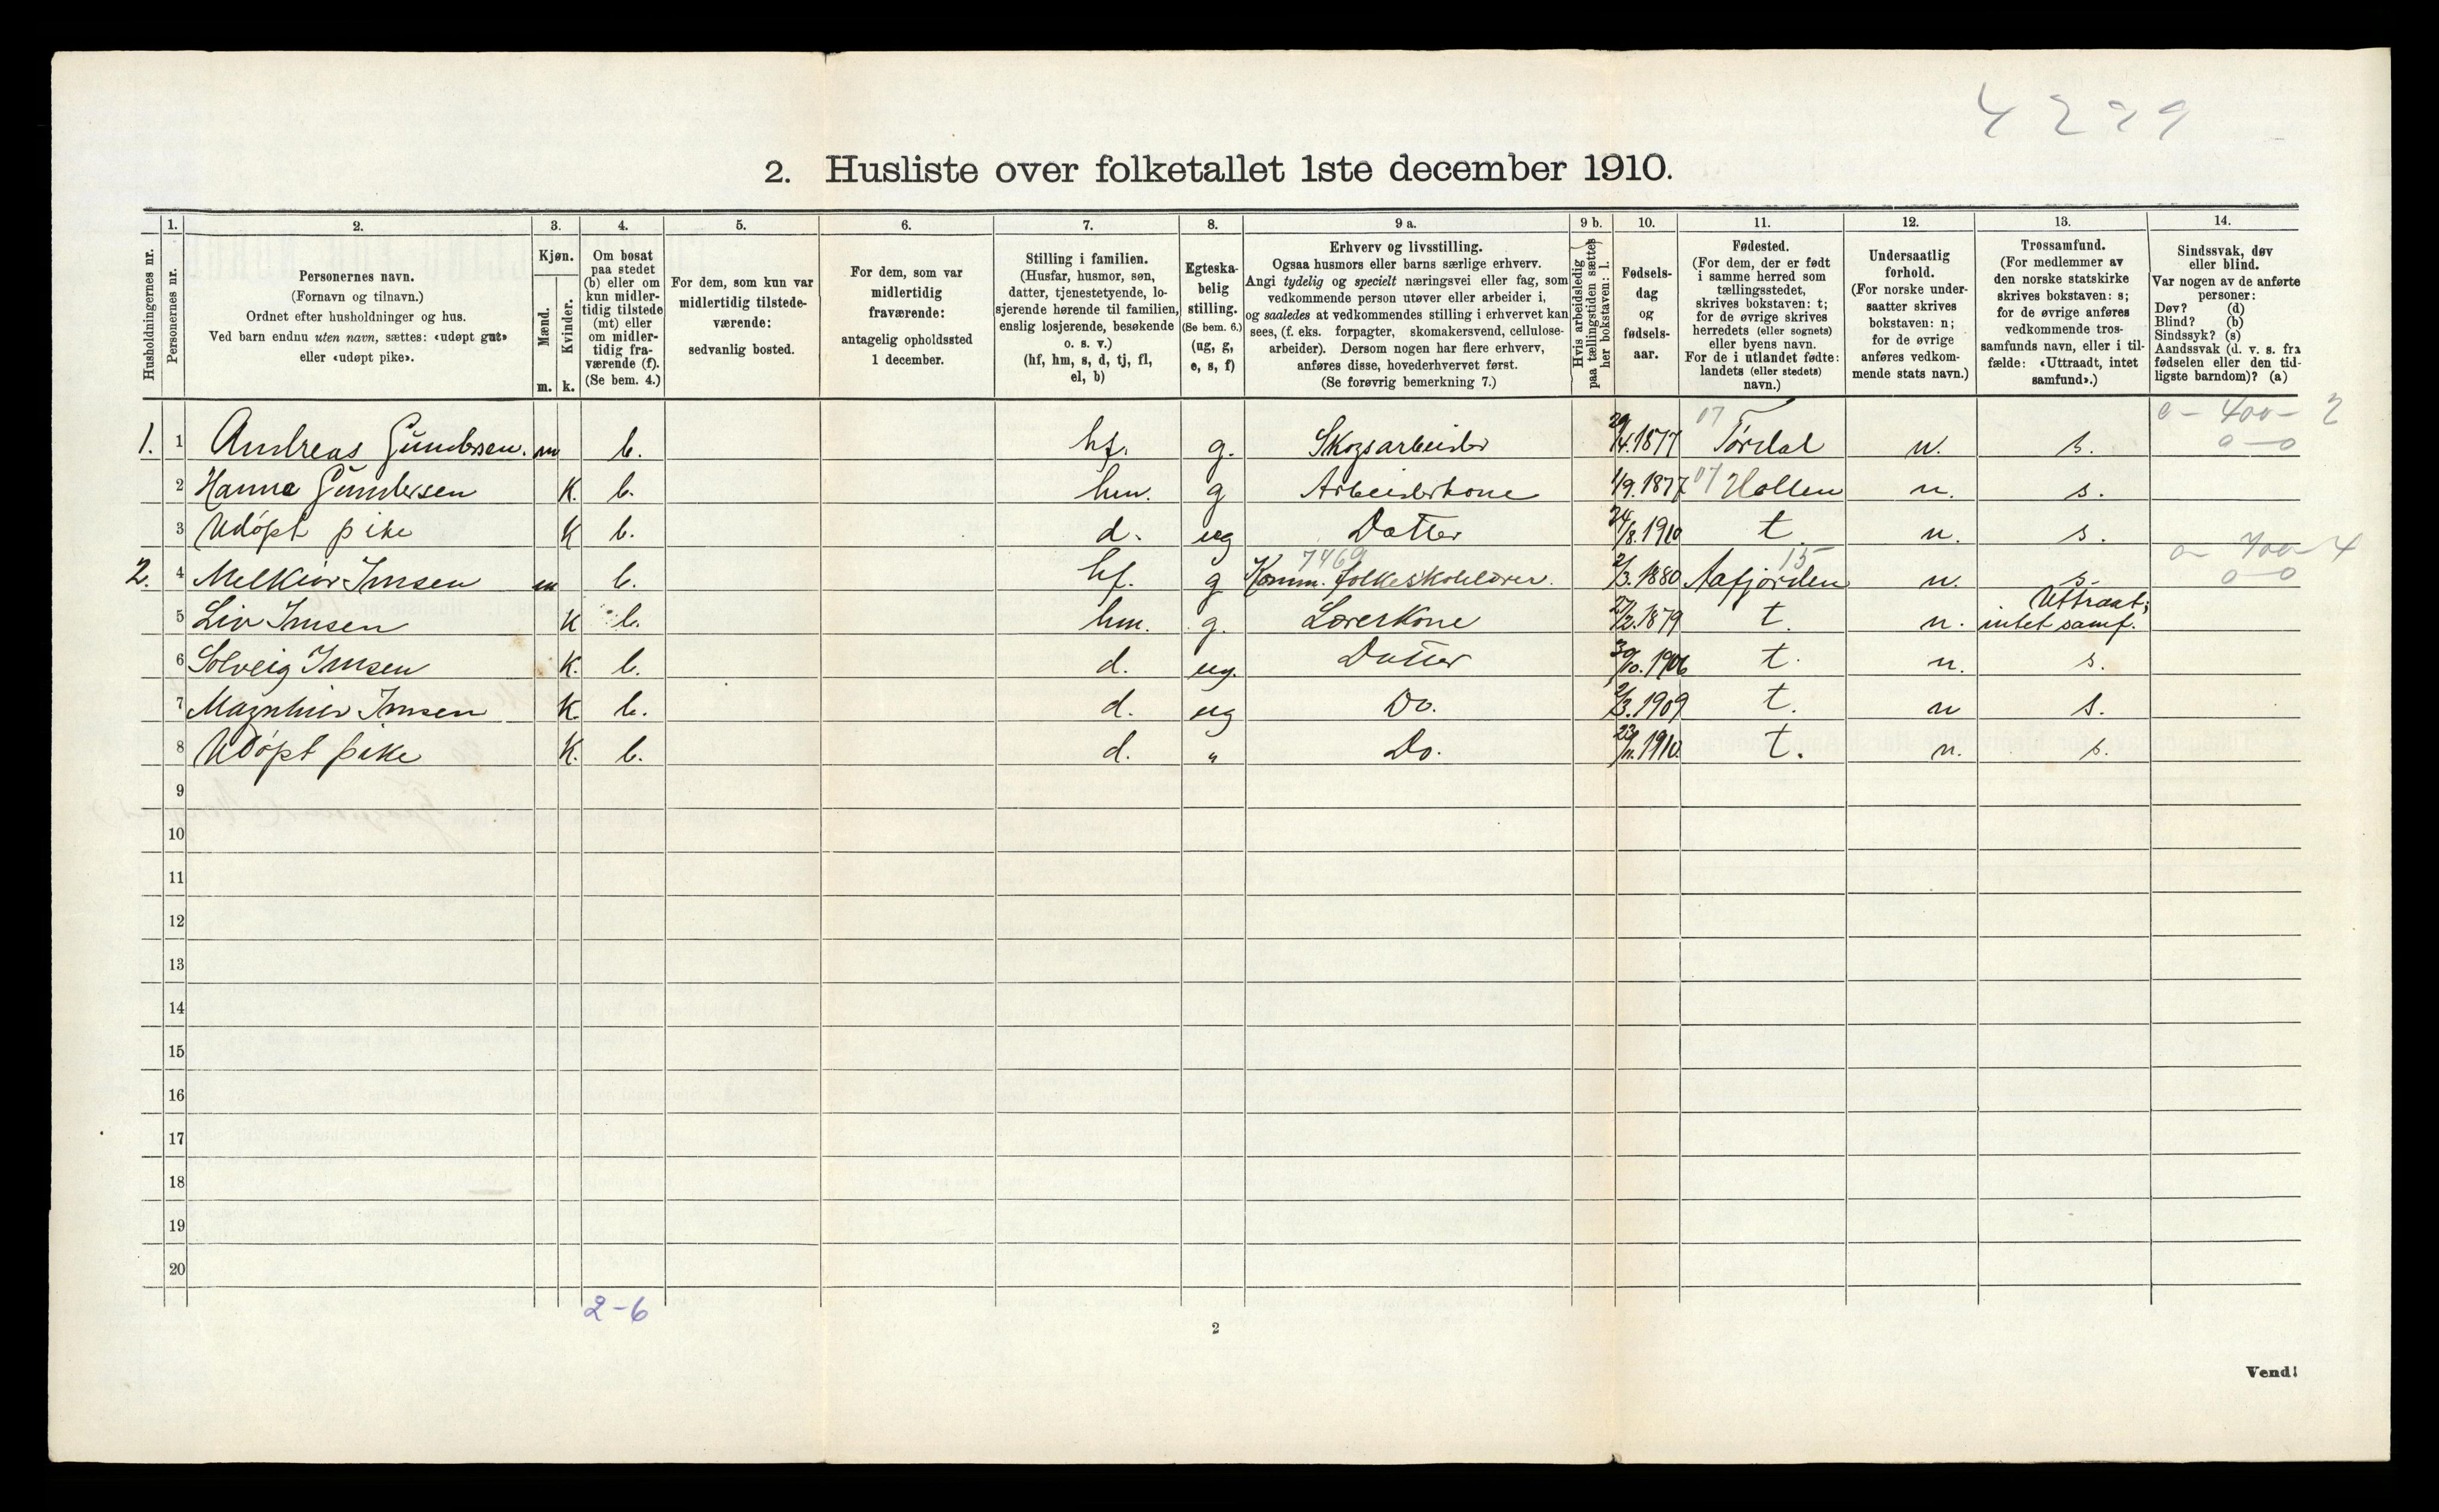 4229
2. Husliste over folketallet 1ste december 1910.
Husholdningernes nr.
1.
Personernes nr.
2.
Personernes navn.
(Fornavn og tilnavn.)
Ordnet efter husholdninger og hus.
Ved barn endnu uten navn, sættes: «udøpt gut»
eller «udøpt pike».
3.
Kjøn.
Mænd.
Kvinder.
m. k.
4.
Om bosat
paa stedet
(b) eller om
kun midler-
tidig tilstede
(mt) eller
om midler-
tidig fra-
værende (f).
(Se bem. 4.)
5.
For dem, som kun var
midlertidig tilstede-
værende:
sedvanlig bosted.
6.
For dem, som var
midlertidig
fraværende:
antagelig opholdssted
1 december.
7.
Stilling i familien.
(Husfar, husmor, søn,
datter, tjenestetyende, lo-
sjerende hørende til familien,
enslig losjerende, besøkende
o. s. v.)
(hf, hm, s, d, tj, fl,
el, b)
8.
Egteska-
belig
stilling.
(Se bem. 6.)
(ug, g,
e, s, f)
9 a.
Erhverv og livsstilling.
Ogsaa husmors eller barns særlige erhverv.
Angi tydelig og specielt næringsvei eller fag, som
vedkommende person utøver eller arbeider i,
og saaledes at vedkommendes stilling i erhvervet kan
sees, (f. eks. forpagter, skomakersvend, cellulose-
arbeider). Dersom nogen har flere erhverv,
anføres disse, hovederhvervet først.
(Se forøvrig bemerkning 7.)
9 b.
Hvis arbeidsledig
paa tællingstiden sættes
her bokstaven: l.
10.
Fødsels-
dag
og
fødsels-
aar.
11.
Fødested.
(For dem, der er født
i samme herred som
tællingsstedet,
skrives bokstaven: t;
for de øvrige skrives
herredets (eller sognets)
eller byens navn.
For de i utlandet fødte:
landets (eller stedets)
navn.)
12.
Undersaatlig
forhold.
(For norske under-
saatter skrives
bokstaven: n;
for de øvrige
anføres vedkom-
mende stats navn.)
13.
Trossamfund.
(For medlemmer av
den norske statskirke
skrives bokstaven: s;
for de øvrige anføres
vedkommende tros-
samfunds navn, eller i til-
fælde: «Uttraadt, intet
samfund».)
14.
Sindssvak, døv
eller blind.
Var nogen av de anførte
personer:
Døv? (d)
Blind? (b)
Sindssyk? (s)
Aandssvak (d. v. s. fra
fødselen eller den tid-
ligste barndom)? (a)
07 0 - 400 - 2
1. 1 Andreas Gundersen. m b. hf. g. Skogsarbeider 29/4.1877 Tördal n. s. 0-0
2 Hanna Gundersen K. b. hm. g Arbeiderkone 1/9.1877 07 Hollen n. s.
3 Udöpt pike K b. d. ug Datter 24/8.1910 t n. s.
7469 15 0 - 700 - 4
2. 4 Melkior Imsen m b. hf. g Komm. folkeskolelærer. 2/3.1880 Aafjorden n. s. 0-0
Uttraat;
5 Liv Imsen K b. hm. g. Lærerkone 27/2.1879 t. n. intet samf.
6 Solveig Imsen K. b. d. ug. Datter 30/10.1906 t. n. s.
7 Magnhier Imsen K. b. d. ug Do. 2/3.1909 t. n s.
8 Udöpt pike K. b. d. " Do. 23/11.1910. t. n. s.
9
10
11
12
13
14
15
16
17
18
19
20
2-6
2
Vend!